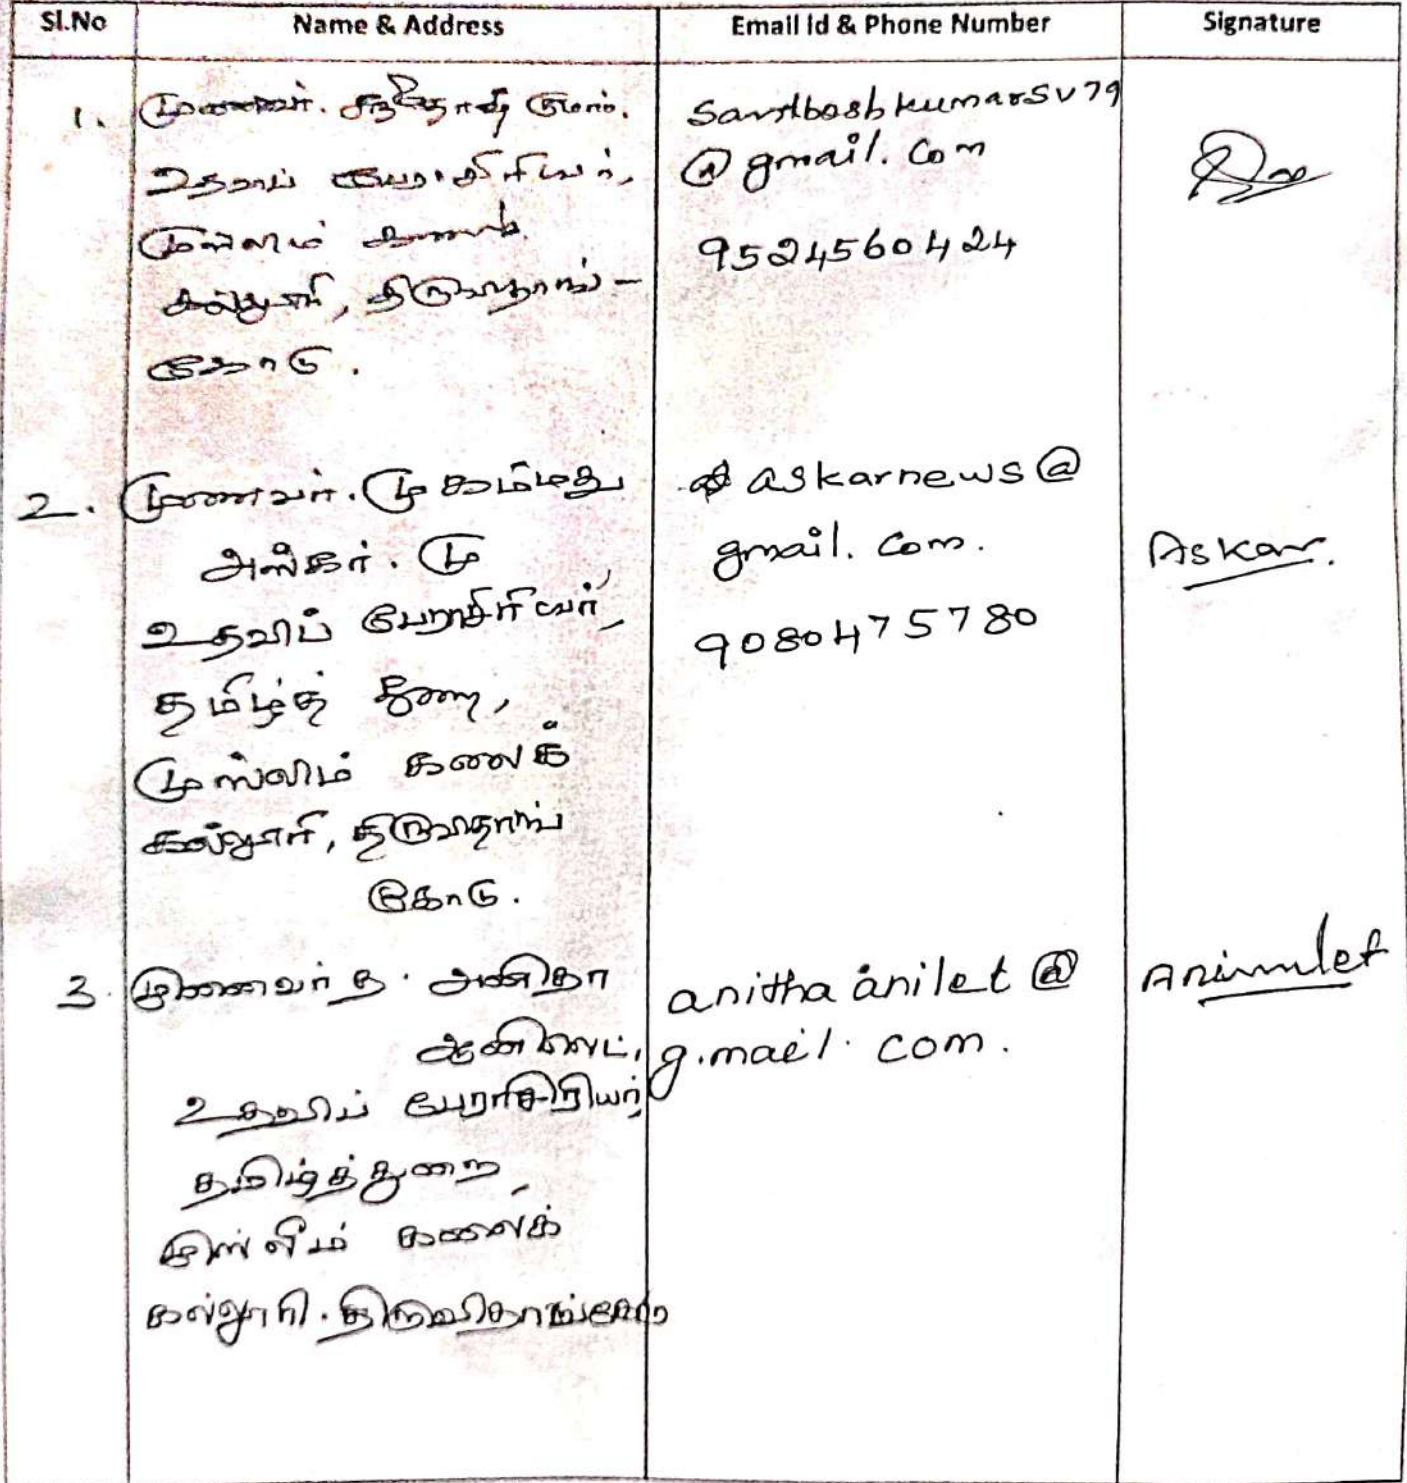 Sl.No Name & Address Email Id & Phone Number Signature
1. முனைவர். சந்தோஷ் குமார்.
உதவிப் பேராசிரியர்,
முஸ்லிம் கலைக்
கல்லூரி, திருவிதாங்-
கோடு.
santhoshkumarsv79
@gmail.com
9524560424
2. முனைவர். முகம்மது
அஸ்கர். மு
உதவிப் பேராசிரியர்,
தமிழ்த் துறை,
முஸ்லிம் கலைக்
கல்லூரி, திருவிதாங்
கோடு.
askarnews@
gmail.com.
9080475780
Askar.
3. முனைவர் த. அனிதா
ஆனிலெட்,
உதவிப் பேராசிரியர்,
தமிழ்த்துறை,
முஸ்லீம் கலைக்
கல்லூரி. திருவிதாங்கோடு
anitha anilet @
g.mail. com.